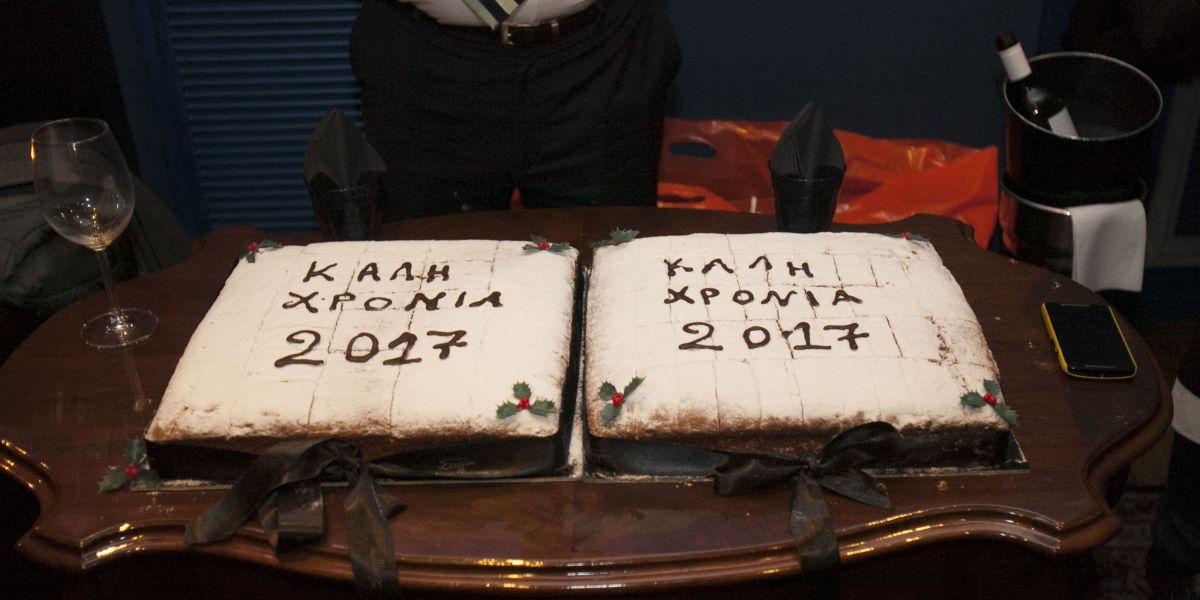 ΚΑΛΗ
ΧΡΟΝΙΑ
2017
ΚΑΛΗ
ΧΡΟΝΙΑ
2017